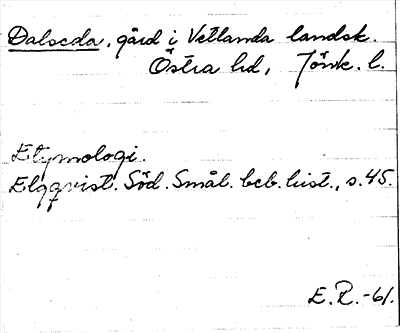 Dalseda, gård i Vetlanda landsk.
Östra hd, Jönk. l.
Etymologi.
Elqqvist. Söd. Smål. beb. hist., s. 45.
E. R. -61.